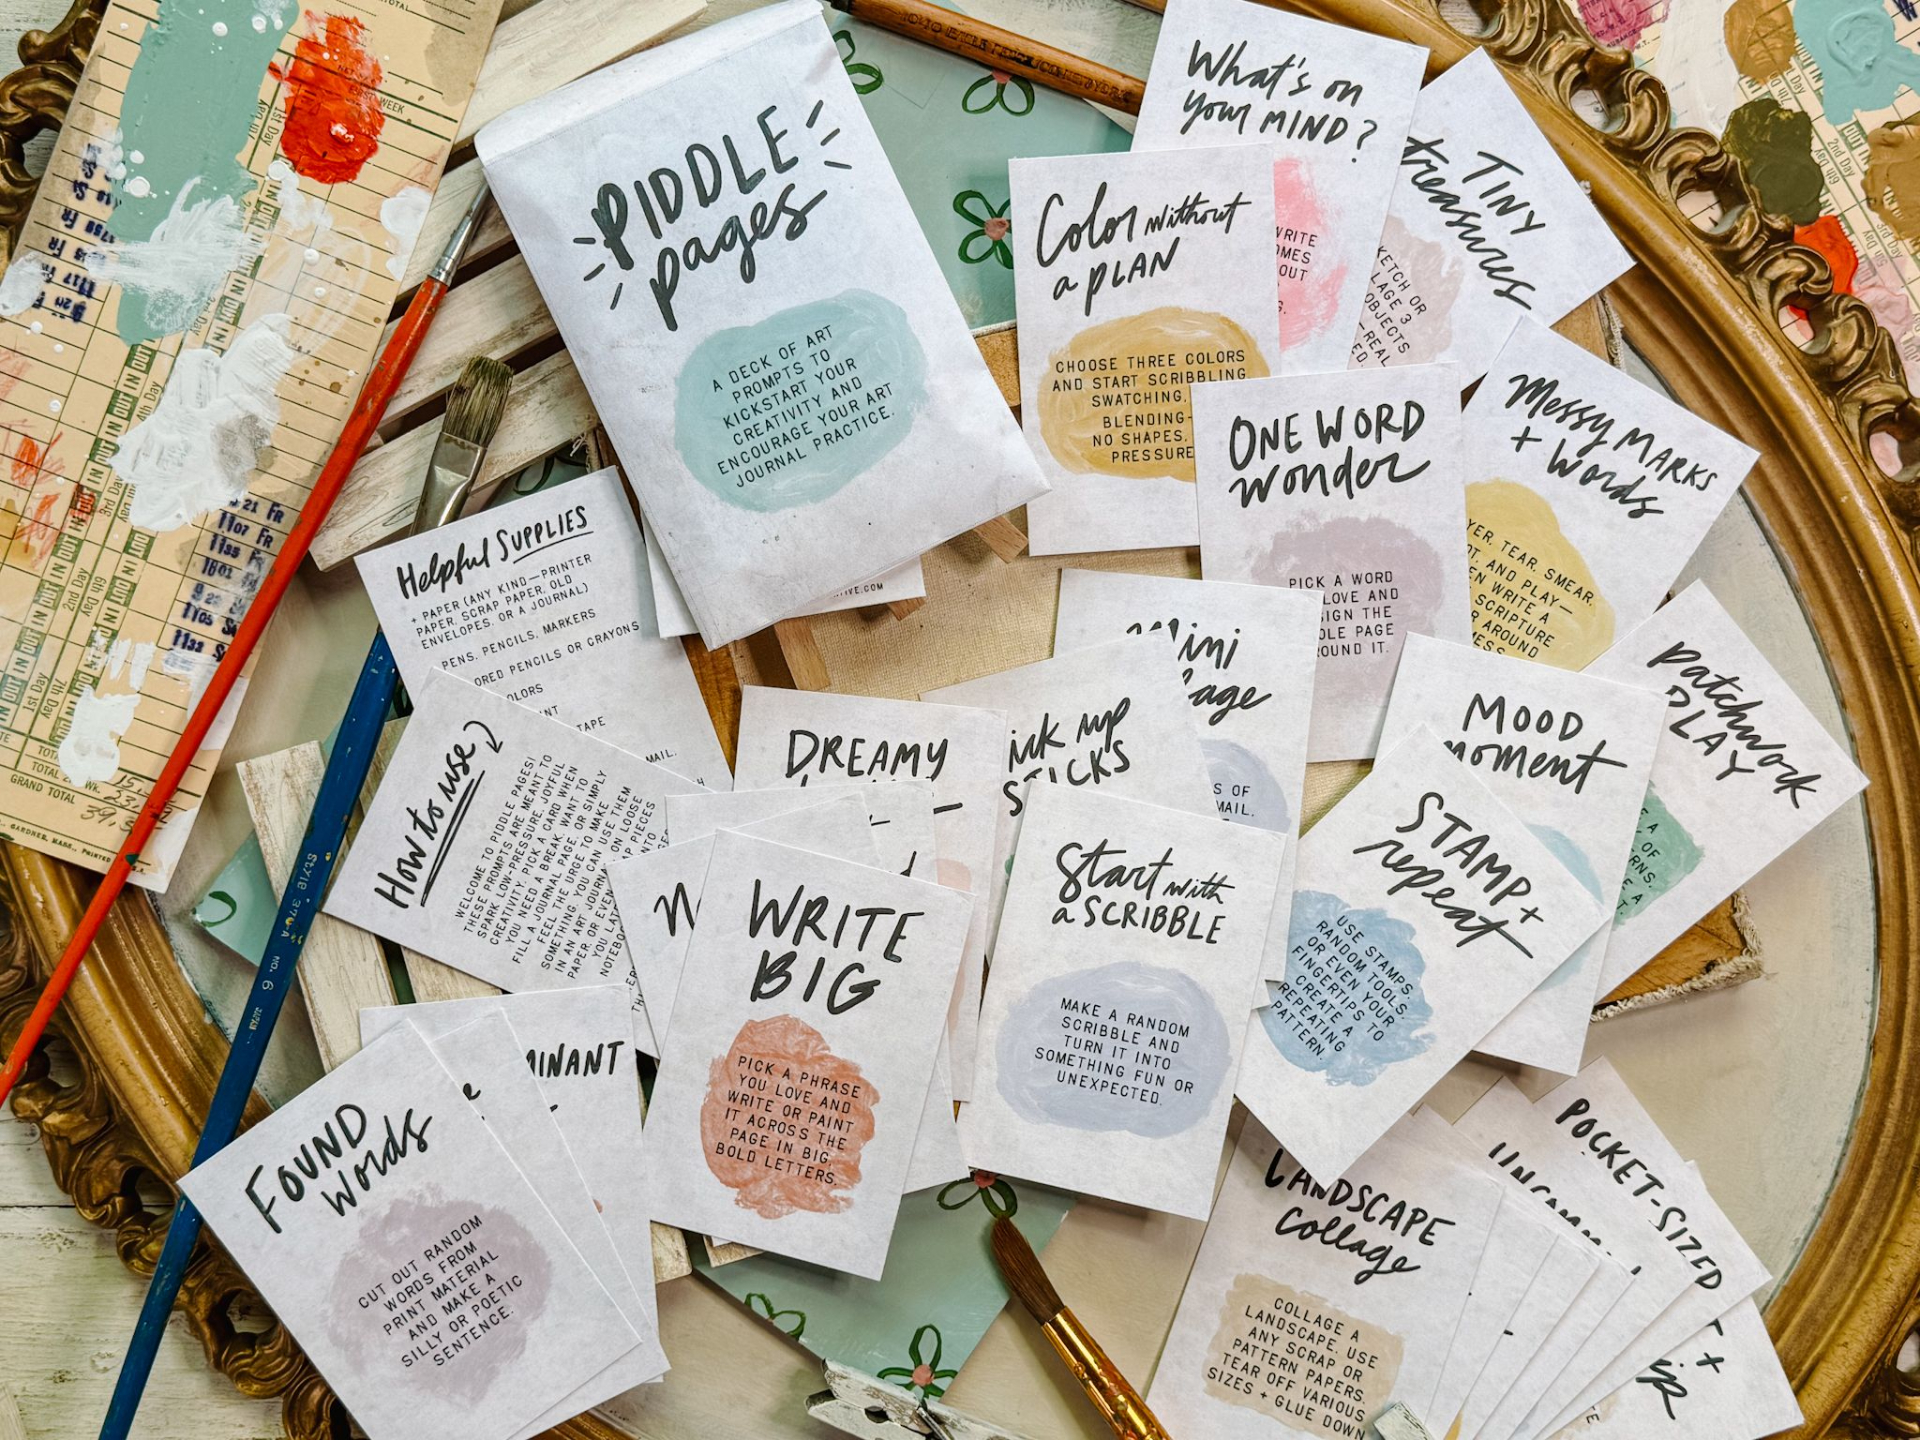 PIDDLE
pages
A DECK OF ART
PROMPTS TO
KICKSTART YOUR
CREATIVITY AND
ENCOURAGE YOUR ART
JOURNAL PRACTICE.
What's on
your MIND?
WRITE
OUT
TINY
treasures
KETCH OR
LAGE 3
OBJECTS
-REAL
Color without
a PLAN
CHOOSE THREE COLORS
AND START SCRIBBLING
SWATCHING,
BLENDING-
NO SHAPES,
PRESSURE
ONE WORD
wonder
PICK A WORD
LOVE AND
SIGN THE
OLE PAGE
OUND IT.
Messy MARKS
+ Words
YER, TEAR, SMEAR,
OT, AND PLAY—
EN WRITE A
SCRIPTURE
R AROUND
Helpful SUPPLIES
+ PAPER (ANY KIND—PRINTER
PAPER, SCRAP PAPER, OLD
ENVELOPES, OR A JOURNAL)
PENS, PENCILS, MARKERS
ORED PENCILS OR CRAYONS
OLORS
TAPE
MAIL,
How to use
WELCOME TO PIDDLE PAGES!
THESE PROMPTS ARE MEANT TO
SPARK LOW-PRESSURE, JOYFUL
CREATIVITY. PICK A CARD WHEN
YOU NEED A BREAK, WANT TO
FILL A JOURNAL PAGE, OR SIMPLY
FEEL THE URGE TO MAKE
SOMETHING. YOU CAN USE THEM
IN AN ART JOURNA ON LOOSE
PAPER, OR EVEN AP PIECES
YOU LAT NTO
NOTEBO
DREAMY
ick up
STICKS
ini
age
S OF
MAIL.
MOOD
moment
patchwork
PLAY
E A
S OF
RNS.
STAMP +
repeat
USE STAMPS,
RANDOM TOOLS,
OR EVEN YOUR
FINGERTIPS TO
CREATE A
REPEATING
PATTERN.
Start with
a SCRIBBLE
MAKE A RANDOM
SCRIBBLE AND
TURN IT INTO
SOMETHING FUN OR
UNEXPECTED.
WRITE
BIG
PICK A PHRASE
YOU LOVE AND
WRITE OR PAINT
IT ACROSS THE
PAGE IN BIG,
BOLD LETTERS.
INANT
FOUND
Words
CUT OUT RANDOM
WORDS FROM
PRINT MATERIAL
AND MAKE A
SILLY OR POETIC
SENTENCE.
LANDSCAPE
collage
COLLAGE A
LANDSCAPE. USE
ANY SCRAP OR
PATTERN PAPERS.
TEAR OFF VARIOUS
SIZES + GLUE DOWN
POCKET-SIZED
GRAND TOTAL